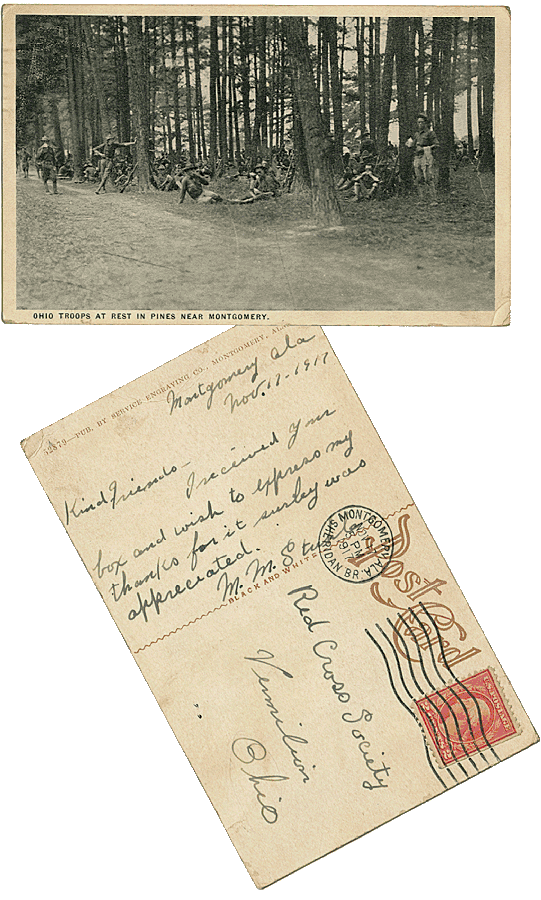 OHIO TROOPS AT REST IN PINES NEAR MONTGOMERY.
PUB. BY SERVICE ENGRAVING CO., MONTGOMERY, ALA
Montgomery Ala
Nov. 17-1917
Kind Friends-
I received your
box and wish to express my
thanks for it surley was
appreciated.
M. M.
BLACK AND WHITE
MONTGOMERY, ALA.
SHERIDAN BR.
PM
1917
Post Card
Red Cross Society
Vermilion
Ohio